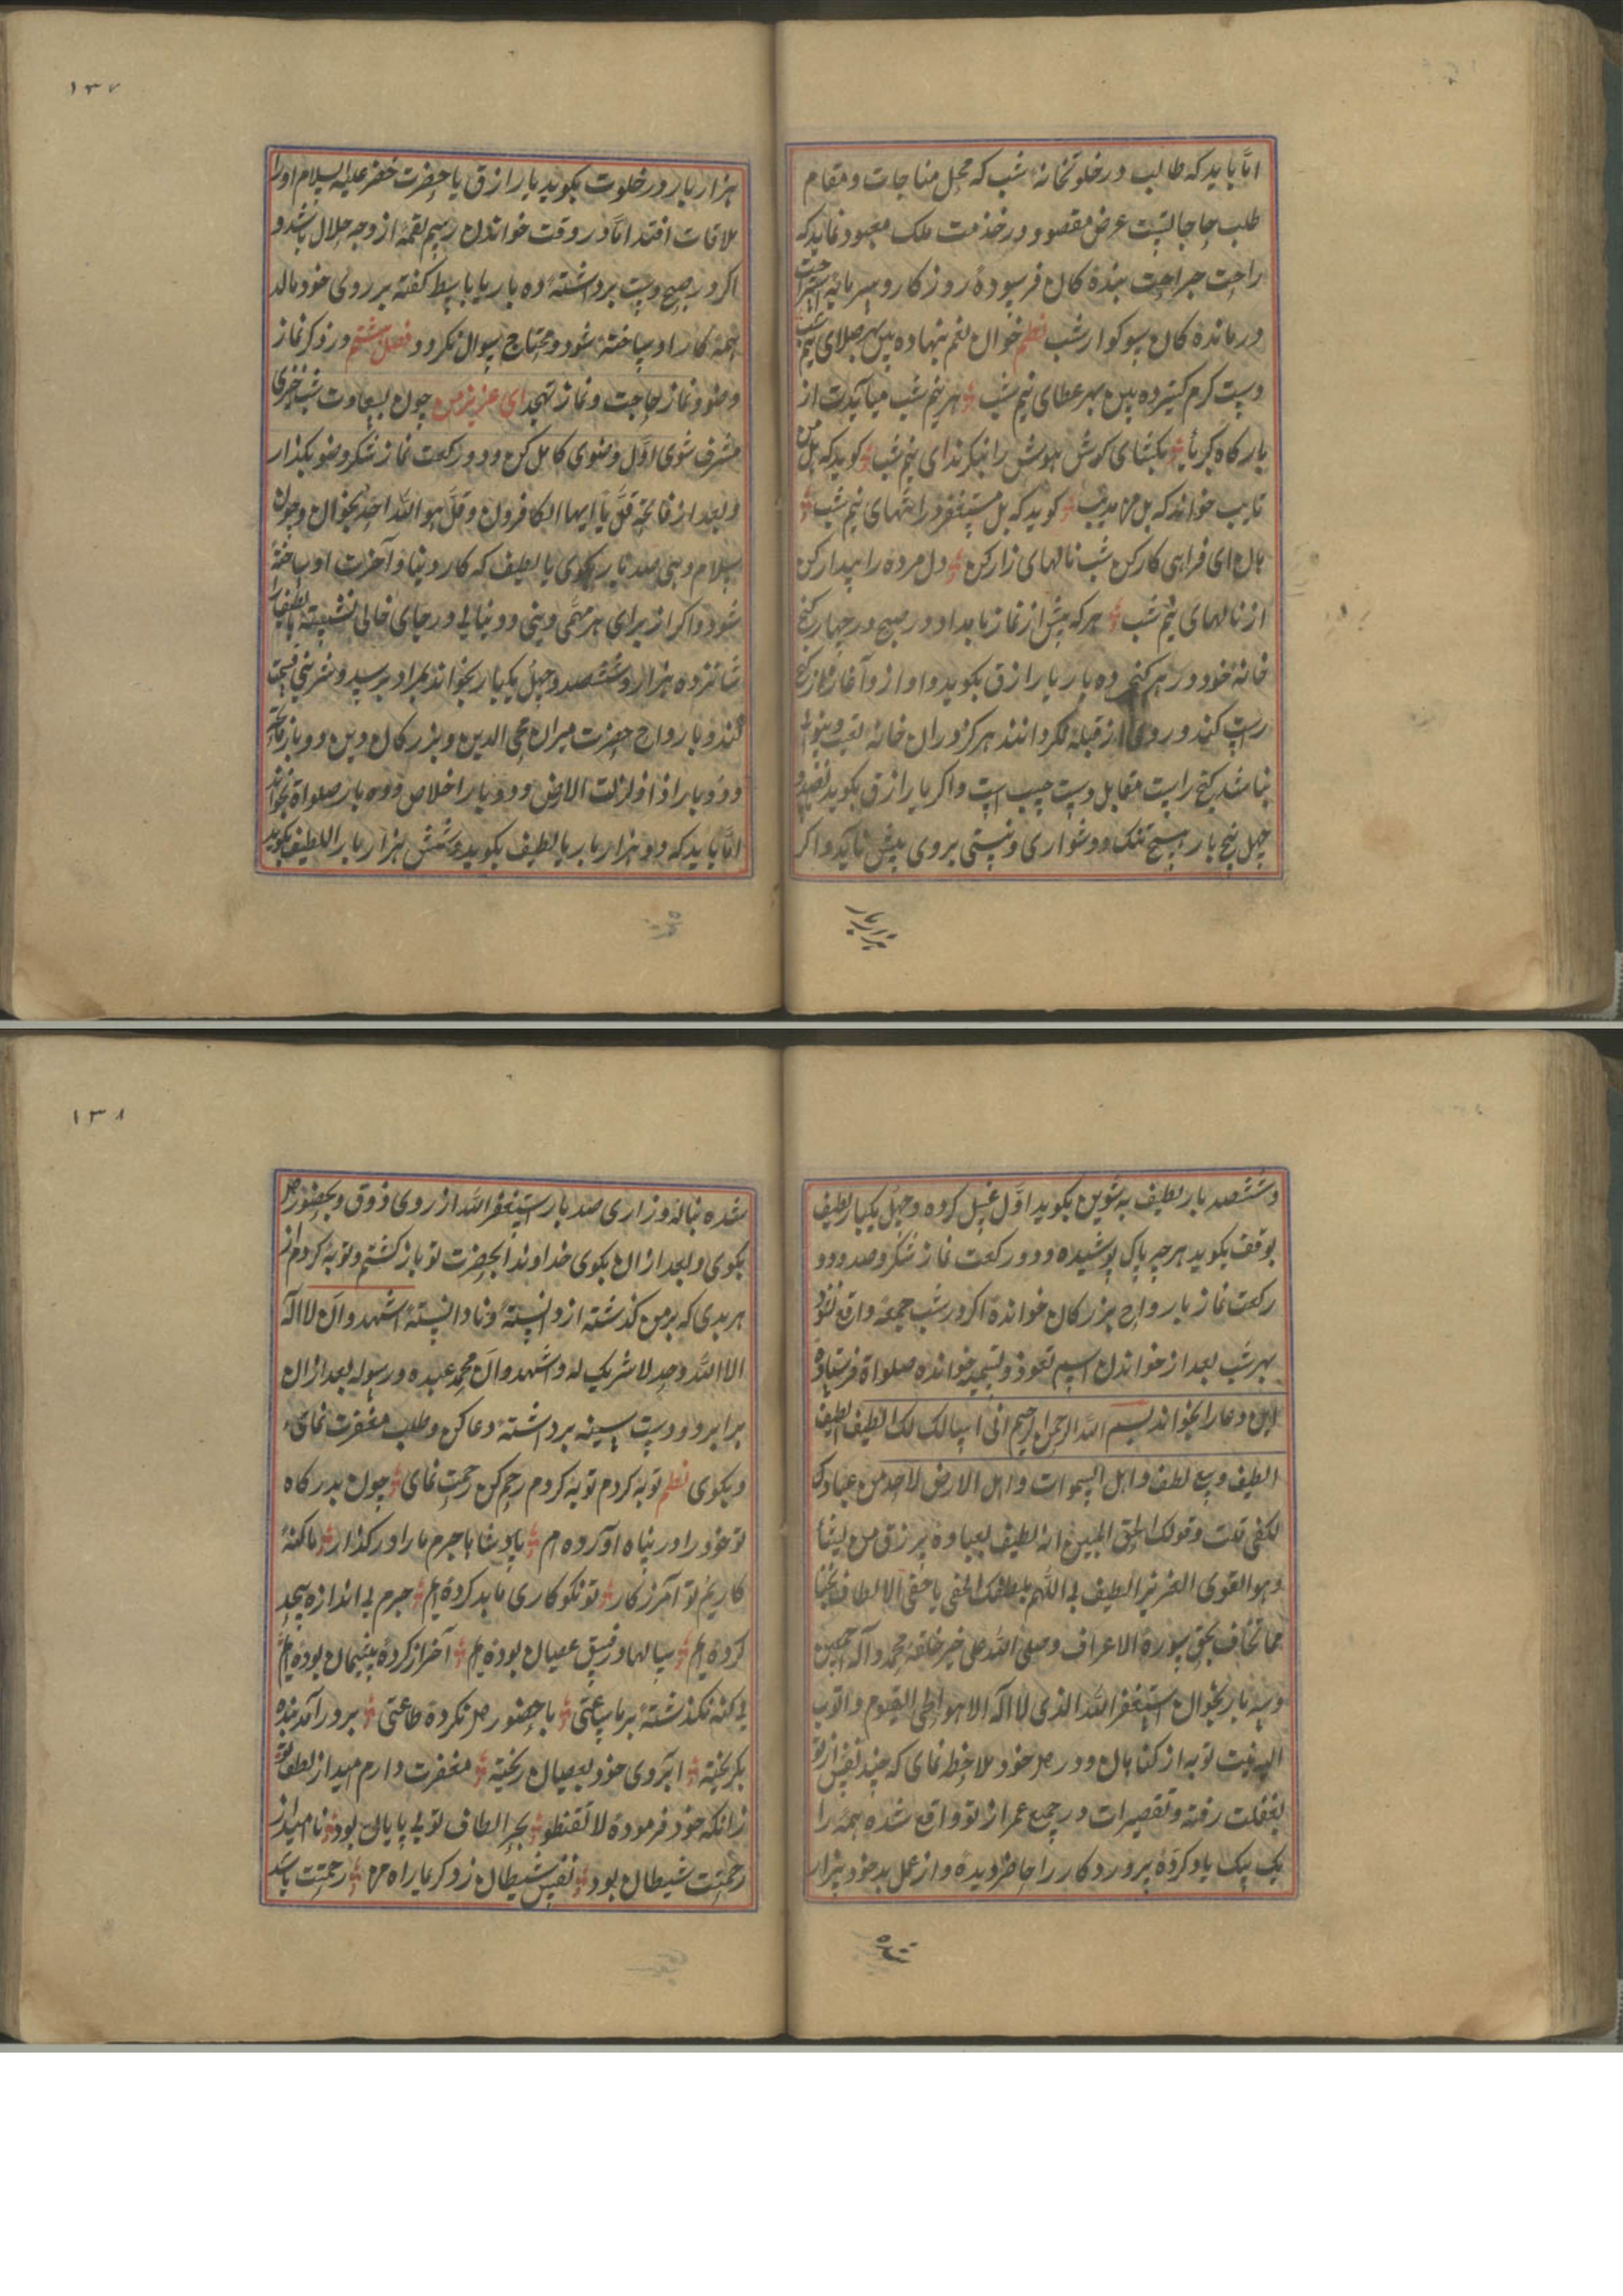 اما باید که طالب در خلوتخانهٔ شب که محل مناجات و مقام
طلب حاجاتست عرض مقصود در خدمت ملک معبود نماید که
راحت جراحت بنده کان فرسودهٔ روزکار و سرمایهٔ استراحت
درمانده کان سوکوار شب نظم خوان نعم بنهاده بین بهر صلای نیم شب
دست کرم کسترده بین بهر عطای نیم شب هر نیم شب میآیدت از
بارکاه کبریا بکشای کوش هوش را بنکر ندای نیم شب کوید که هل من
تایب خواند که هل من مذنب کوید که هل مستغفر در انتهای نیم شب
هان ای فراهی کار کن شب نالهای زار کن دل مرده را بیدار کن
از نالهای نیم شب هر که پیش از نماز بامداد در صبح در چهار کنج
خانهٔ خود در هر کنجی ده بار یا رازق بکوید و اواز و آغاز از کنج
راست کند و روی از قبله نکرداند هرکز در آن خانه تعب و بینوائی
نباشد کنج راست مقابل دست چپ است و اکر یا رازق بکوید نهصد و
چهل پنج بار هیچ تنک و دشواری و پستی بروی پیش نآید و اکر
هزار بار
۱۳۷
هزار بار در خلوت بکوید یا رازق با حضرت خضر علیه السلام او را
ملاقات افتد اما در وقت خواندن اسم لقمه از وجه حلال باشد و
اکر در صبح دست برداشته ده بار یا باسط کفته بر روی خود مالد
همه کار او ساخته شود و محتاج سوال نکردد فصل هشتم در ذکر نماز
وضو و نماز حاجت و نماز تهجد ای عزیز من چون بسعاوت شب خیزی
مشرف شوی اول وضوی کامل کن و دو رکعت نماز شکر وضو بکذار
و بعد از فاتحه قل یا ایها الکافرون و قل هو الله احد بخوان و چون
سلام دهی صد بار بکوی یا لطیف که کار دنیا و آخرت او ساخته
شود و اکر از برای هر مهمی دینی و دنیائی در جای خالی نشسته یا لطیف را
شانزده هزار و ششصد و چهل یکبار بخواند بمراد برسد و شیرینی قسمت
کند و بارواح حضرت میران محی الدین و بزرکان دین دو بار فاتحه
و دو بار اذا زلزلت الارض و دو بار اخلاص و ده بار صلواة بخواند
اما باید که دو هزار بار یا لطیف بکوید و شش هزار بار اللطیف بکوید
و ششصد بار لطیف به تنوین بکوید اول غسل کرده و چهل یکبار لطیف
بوقف بکوید هر چه پاک پوشیده و دو رکعت نماز شکر و صد و دو
رکعت نماز بارواح بزرکان خوانده اکر در شب جمعه واقع نشود
بهر شب بعد از خواندن اسم تعوذ و تسمیه خوانده صلواة فرستاده
این دعا را بخواند بسم الله الرحمن الرحیم انی اسالک لک الطیف الطیف
الطیف وسع لطف و اهل السموات و اهل الارض لاحد من عبادک
لکفی قلت و قولک الحق المبین الله لطیف بعباده یرزق من یشأ
و هو القوی العزیز الطیف بی اللهم بلطفک الخفی یا خفی الالطاف نجنا
مما نخاف بحق سورة الاعراف و صلی الله علی خیر خلقه محمد و آله اجمعین
و سه بار بخوان استغفر الله الذی لا اله الا هو الحی القیوم و اتوب
الیه نیت توبه از کناهان و در دل خود ملاحظه نمای که چند نفس از تو
بغفلت رفته و تقصیرات در جمیع عمر از تو واقع شده همه را
یک بیک یاد کرده پروردکار را حاضر دیده و از عمل بد خود بیزار
شده
۱۳۸
شده بناله و زاری صد بار استغفر الله از روی ذوق و بحضور دل
بکوی و بعد ازان بکوی خداوندا بحضرت تو باز کشتم و توبه کردم از
هر بدی که بر من کذشته از دانسته و نادانسته اشهد و ان لا اله
الا الله وحد لا شریک له و اشهد و ان محمد عبده و رسوله بعد ازان
برابر دو دست بسینه برداشته دعا کن و طلب مغفرت نمای
و بکوی نظم توبه کردم توبه کردم رحم کن رحمت نمای چون بدرکاه
تو خود را در پناه آورده ام پادشاها جرم ما را در کذار ما کنه
کاریم تو آمرزکار تو نکوکاری ما بد کرده ایم جرم بی اندازه بیحد
کرده ایم سالها در فسق عصیان بوده ایم آخر از کرده پشیمان بوده ایم
بی کنه نکذشته بر ما ساعتی با حضور دل نکرده طاعتی بر در آمد بنده
بکریخته ابروی خود بعصیان ریخته مغفرت دارم امید از لطف تو
زانکه خود فرمودهٔ لا تقنطو بحر الطاف تو بی پایان بود نا امید از
رحمتت شیطان بود نفس شیطان زد کریما راه من رحمتت باشد